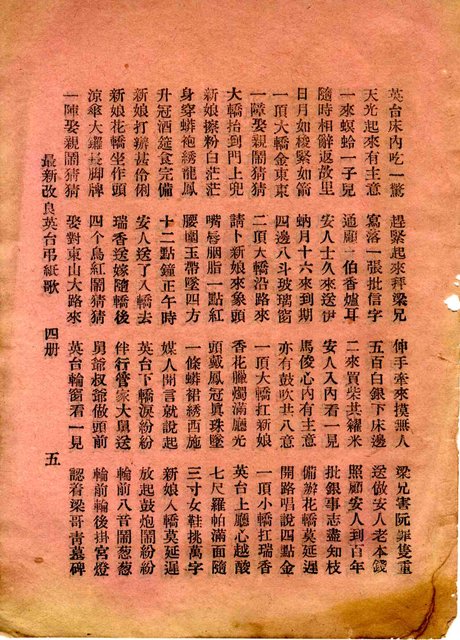 英台床內吃一驚 趕緊起來拜梁兄 伸手牽來摸無人 梁兄害阮罪隻重
天光起來有主意 寫落一張批信字 五百白銀下床邊 送做安人老本錢
一來螟蛉一子兒 通顧二伯香爐耳 二來買柴共糴米 照顧安人到百年
隨時相辭返故里 安人士久來送伊 安人入內看一見 批銀事志盡知枝
日月如梭緊如箭 蚋月十六來到期 馬俊心內有主意 備辦花轎莫延遲
一頂大轎金東東 四邊八斗玻璃窗 亦有鼓吹共八意 開路唱說四點金
一陣娶親鬧鳳鳳 二頂大轎沿路來 一頂大轎扛新娘 一頂小轎扛瑞香
大轎抬到門上兜 請卜新娘來象頭 香花臘燭滿廳光 英台上廳心越酸
新娘擦粉白茫茫 嘴唇胭脂一點紅 頭戴鳳冠真珠墜 七尺羅帕滿面隨
身穿蟒袍綉龍鳳 腰圍玉帶墜四方 一條蟒裙綉西施 三寸女鞋挑萬字
升冠酒筵食完備 十二點鐘正午時 媒人開言就說起 新娘入轎莫延遲
新娘打辦甚伶俐 安人送了入轎去 英台下轎淚紛紛 放起鼓炮鬧紛紛
新娘花轎坐作頭 瑞香送嫁隨轎後 伴行管家大舅送 輪前八音鬧葱葱
涼傘大鑼長脚牌 四个烏紅鬧猜猜 舅爺叔爺做頭前 輪前輪後掛宮燈
一陣娶親鬧猜猜 娶對東山大路來 英台輪窗看一見 認着梁哥青墓碑
最新改良英台弔紙歌 四册 五